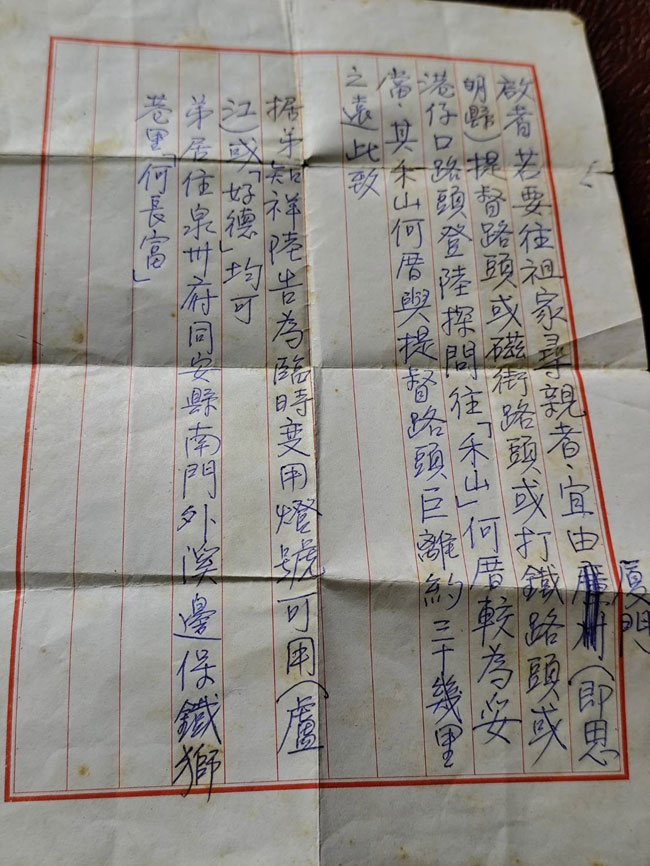 啟者若要往祖家尋親者．宜由廈門（即思
明縣）提督路頭或磁街路頭或打鐵路頭或
港仔口路頭登陸探問往「禾山」何厝較為妥
當．其禾山何厝與提督路頭巨離約三十幾里
之遠此致
据弟知祥陸告為臨時变用燈號可用（盧
江）或「好德」均可
弟居住泉卅府同安縣南門外溪邊保鐵獅
巷里「何長富」